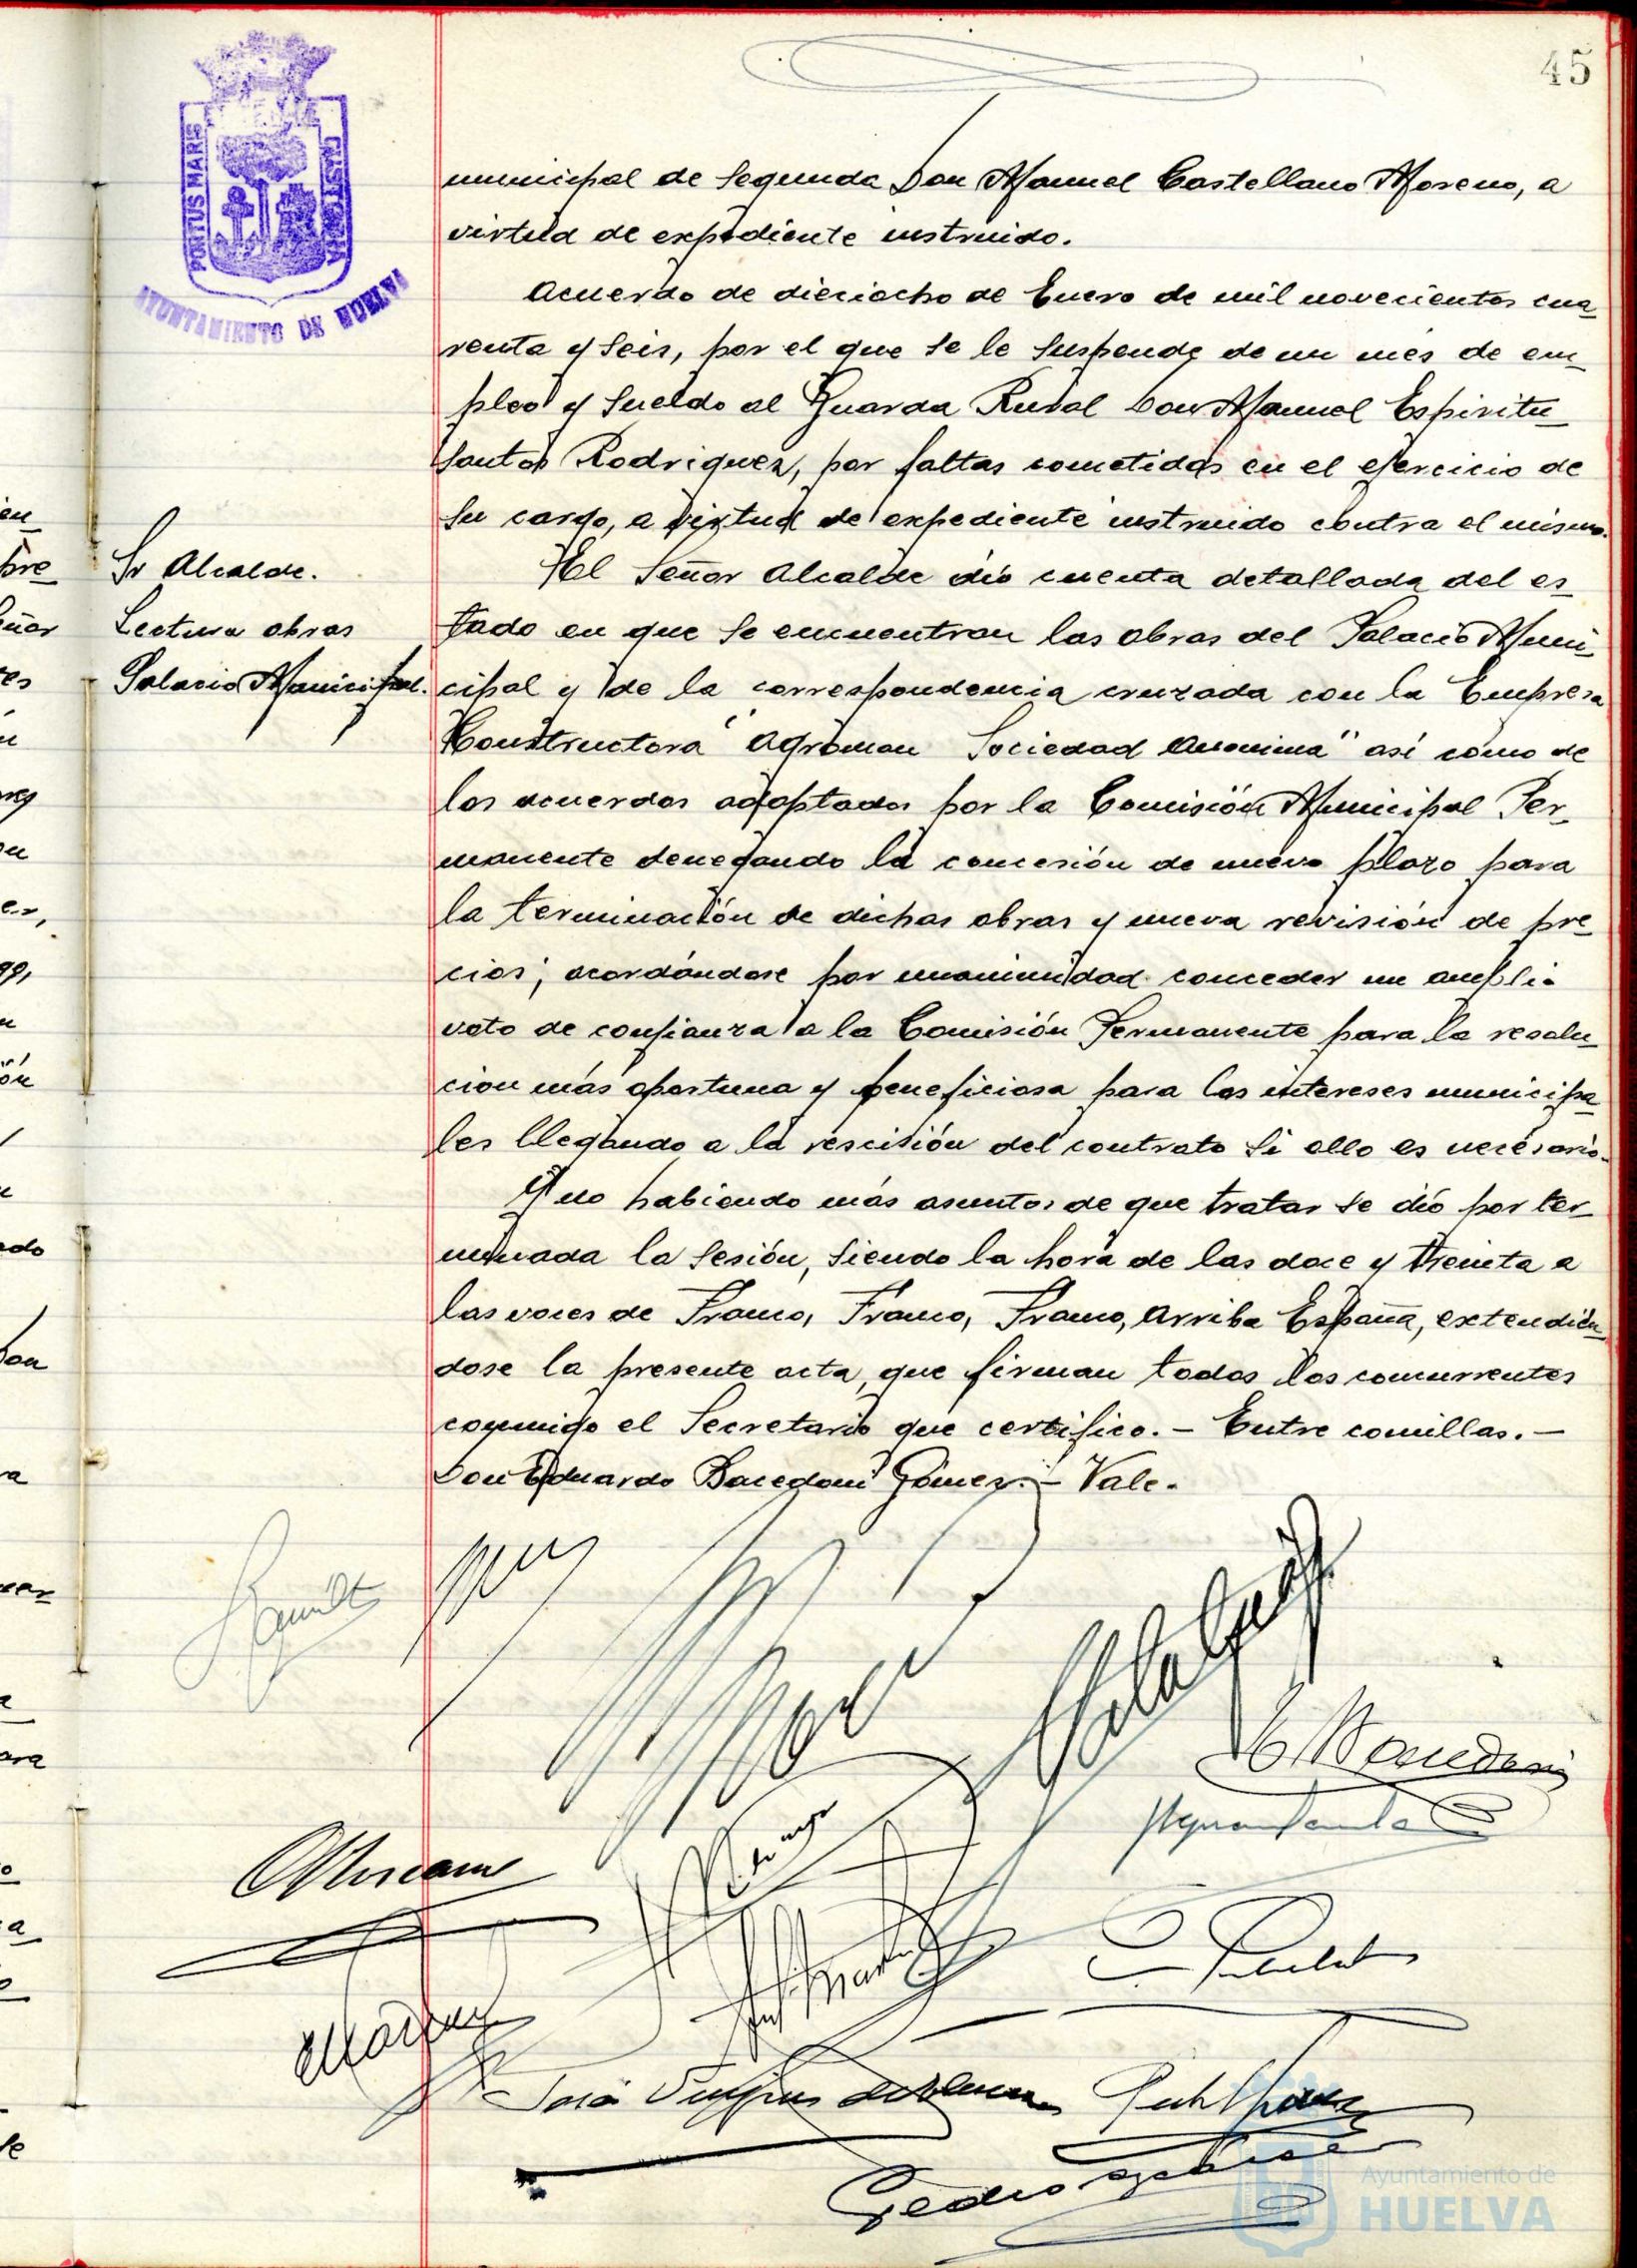 45
PORTUS MARIS
ET TERRAE CUSTODIA
AYUNTAMIENTO DE HUELVA
municipal de Segunda Don Manuel Castellano Moreno, a
virtud de expediente instruido.
Acuerdo de dieciocho de Enero de mil novecientos cua
renta y seis, por el que se le suspende de un mes de em
pleo y sueldo al Guarda Rural Don Manuel Espiritu
Santo Rodriguez, por faltas cometidas en el ejercicio de
su cargo, a virtud de expediente instruido contra el mismo.
Sr Alcalde.
Lectura obras
Palacio Municipal.
El Señor Alcalde dió cuenta detallada del es
tado en que se encuentran las obras del Palacio Muni
cipal y de la correspondencia cruzada con la Empresa
Constructora "Agroman Sociedad Anonima" así como de
los acuerdos adoptados por la Comisión Municipal Per
manente denegando la concesión de nuevo plazo para
la terminación de dichas obras y nueva revisión de pre
cios; acordándose por unanimidad conceder un amplio
voto de confianza a la Comisión Permanente para la resolu
cion más oportuna y beneficiosa para los intereses municipa
les llegando a la rescisión del contrato si ello es necesario.
Y no habiendo más asuntos de que tratar se dió por ter
minada la sesión, siendo la hora de las doce y treinta a
las voces de Franco, Franco, Franco, Arriba España, extendién
dose la presente acta, que firman todos los concurrentes
conmigo el Secretario que certifico. - Entre comillas. -
Don Eduardo Bacedoni Gómez. - Vale.
Ayuntamiento de
HUELVA